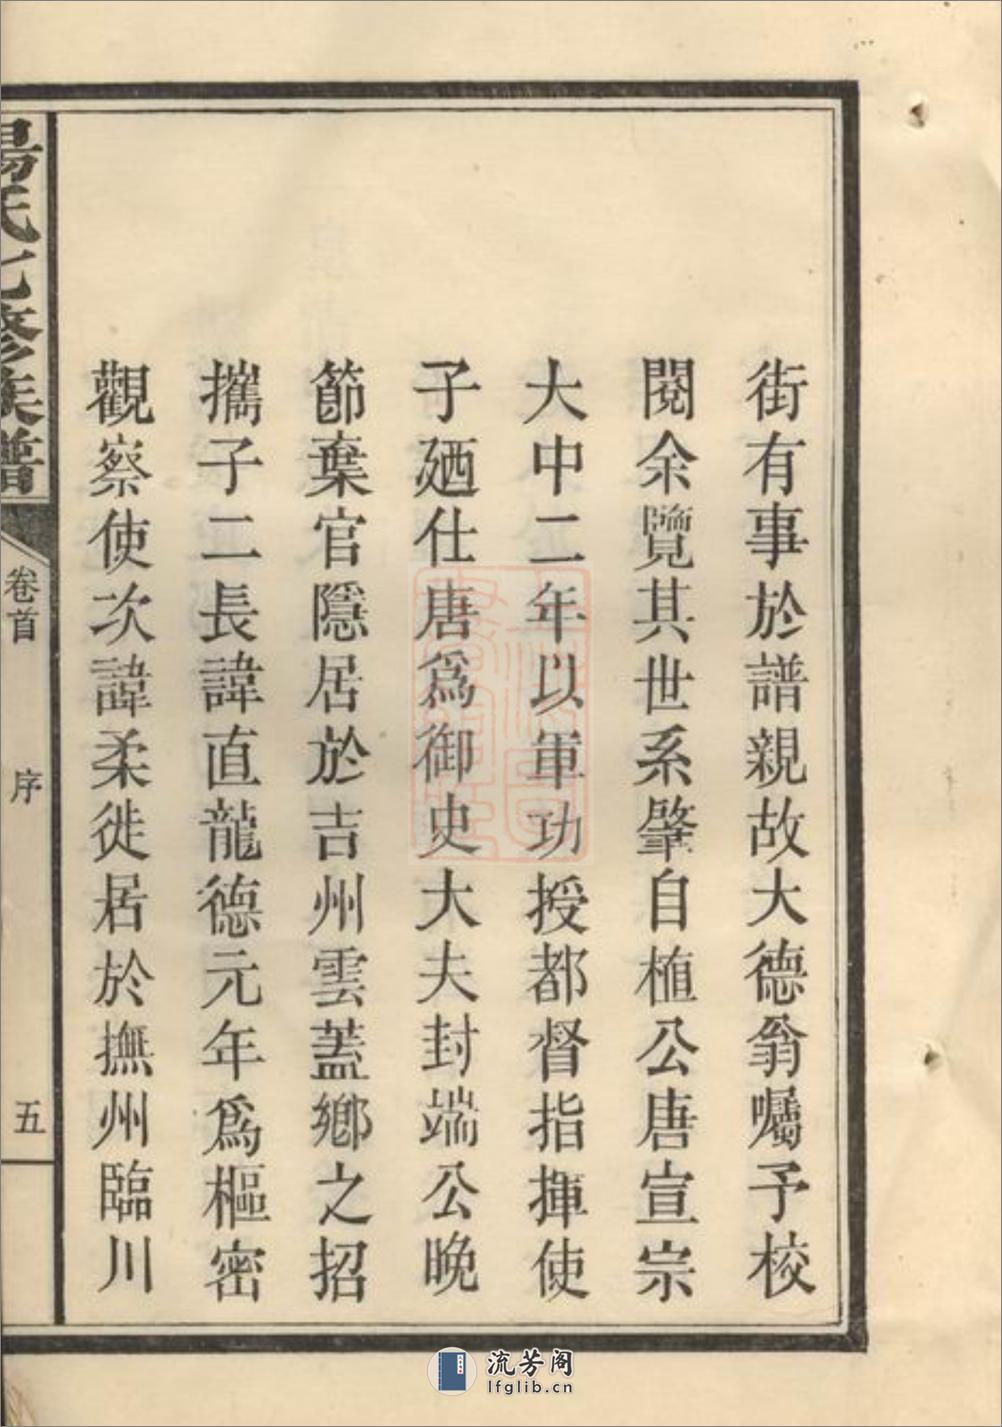 街有事於譜親故大德翁囑予校
閱余覽其世系肇自植公唐宣宗
大中二年以軍功授都督指揮使
子廼仕唐爲御史大夫封端公晚
節棄官隱居於吉州雲蓋鄉之招
攜子二長諱直龍德元年爲樞密
觀察使次諱柔徙居於撫州臨川
湯氏七修族譜
卷首
序
五
流芳阁
lfglib.cn